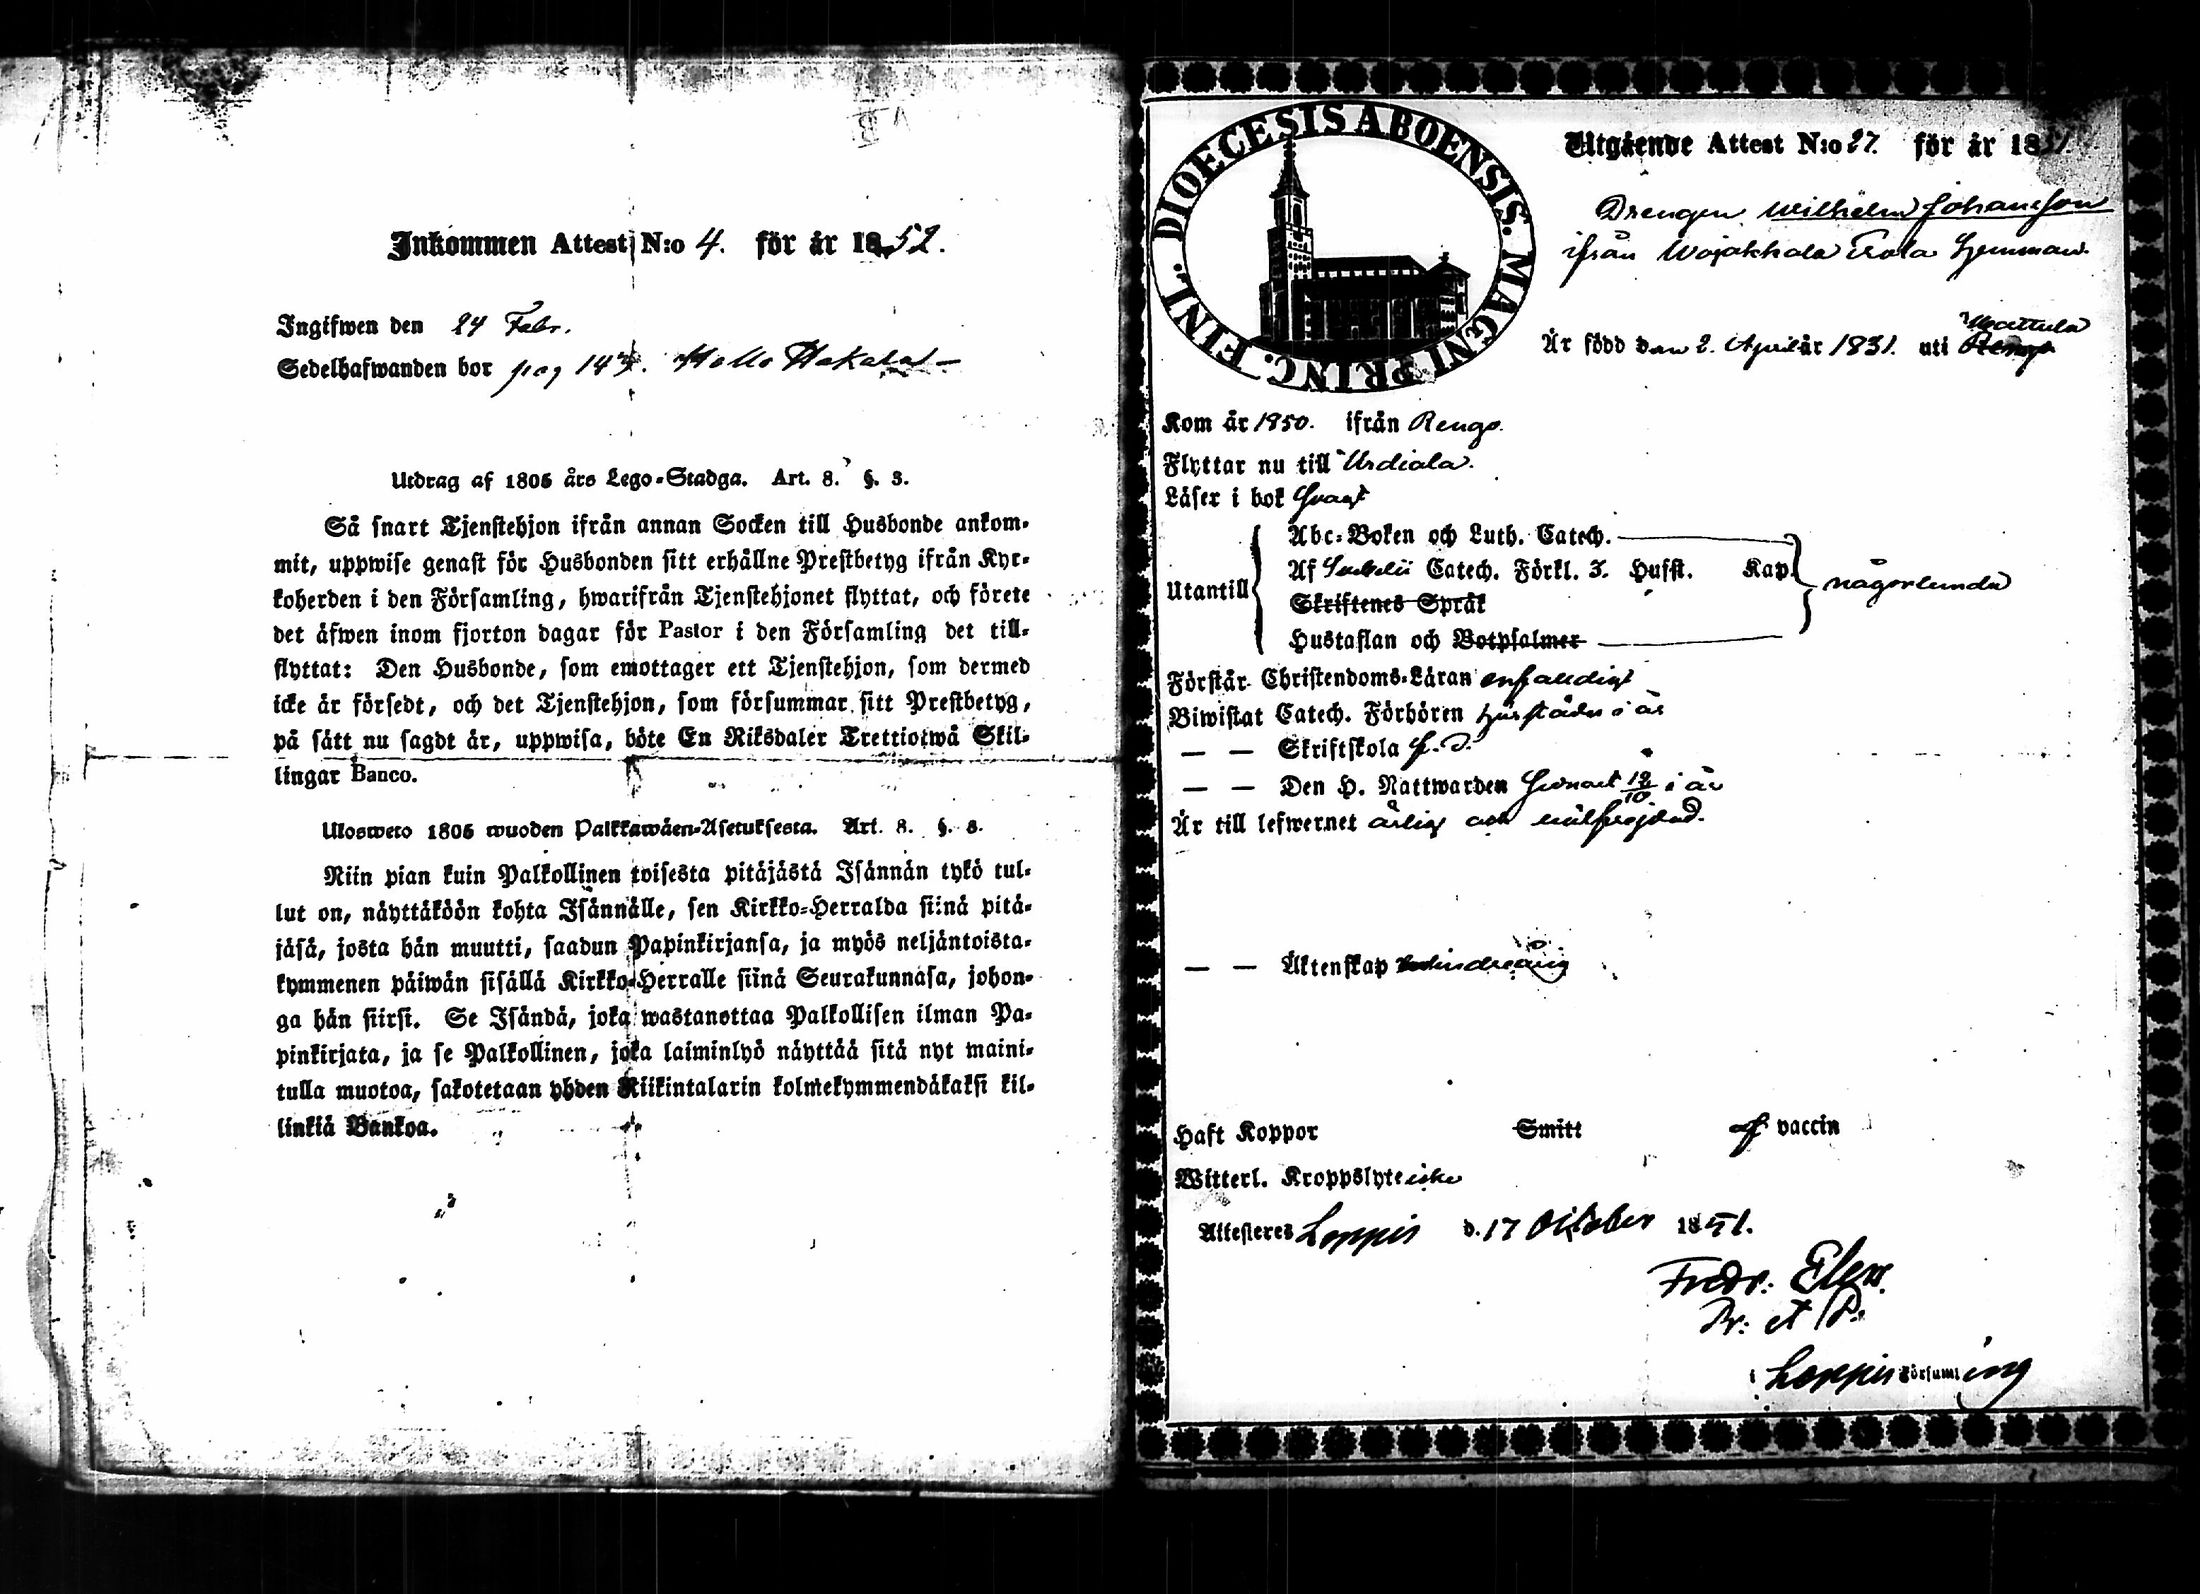 Inkommen Attest N:o 4. för år 1852.
Ingifwen den 24 Febr.
Sedelhafwanden bor pag 147.
Utdrag af 1805 års Lego-Stadga. Art. 8. §. 3.
Så snart Tjenstehjon ifrån annan Socken till Husbonde ankom-
mit, uppwise genast för Husbonden sitt erhållne Prestbetyg ifrån Kyr-
koherden i den Församling, hwarifrån Tjenstehjonet flyttat, och förete
det äfwen inom fjorton dagar för Pastor i den Församling det till-
flyttat: Den Husbonde, som emottager ett Tjenstehjon, som dermed
icke är försedt, och det Tjenstehjon, som försummar sitt Prestbetyg,
på sätt nu sagdt är, uppwisa, böte En Riksdaler Trettiotwå Skil-
lingar Banco.
Ulosweto 1805 wuoden Palkkawäen-Asetuksesta. Art. 8. §. 3.
Niin pian kuin Palkollinen toisesta pitäjästä Isännän tykö tul-
lut on, näyttäköön kohta Isännälle, sen Kirkko-Herralda siinä pitä-
jäsä, josta hän muutti, saadun Papinkirjansa, ja myös neljäntoista-
kymmenen päiwän sisällä Kirkko-Herralle siinä Seurakunnasa, johon-
ga hän siirsi. Se Isändä, joka wastanottaa Palkollisen ilman Pa-
pinkirjata, ja se Palkollinen, joka laiminlyö näyttää sitä nyt maini-
tulla muotoa, sakotetaan yhden Riikintalarin kolmekymmendäkaksi kil-
linkiä Bankoa.
DIOECESIS ABOENSIS. MAGNI PRINC. FINL.
Utgående Attest N:o 27. för år 1851.
Drengen Wilhelm Johansson
ifrån Wojakkala Hemman.
Wattula
Är född den 2. April år 1831. uti Rengo
Kom år 1850. ifrån Rengo.
Flyttar nu till Urdiala.
Läser i bok svagt
Abc-Boken och Luth. Catech.
Utantill Af Catech. Förkl. 3. Husst. Kap. någorlunda
Skriftenes Språk
Hustaflan och Botpsalmer
Förstår Christendoms-Läran enfaldigt
Biwistat Catech. Förhören i år
— — Skriftskola
— — Den H. Nattwarden senast 12/10 i år
Är till lefwernet ärlig och
— — Äktenskap
Haft Koppor Smitt af vaccin
Witterl. Kroppslyte icke
Attesteres Loppis d. 17 Oktober 1851.
Fredr:
Pr: et P:
i Loppis Församling